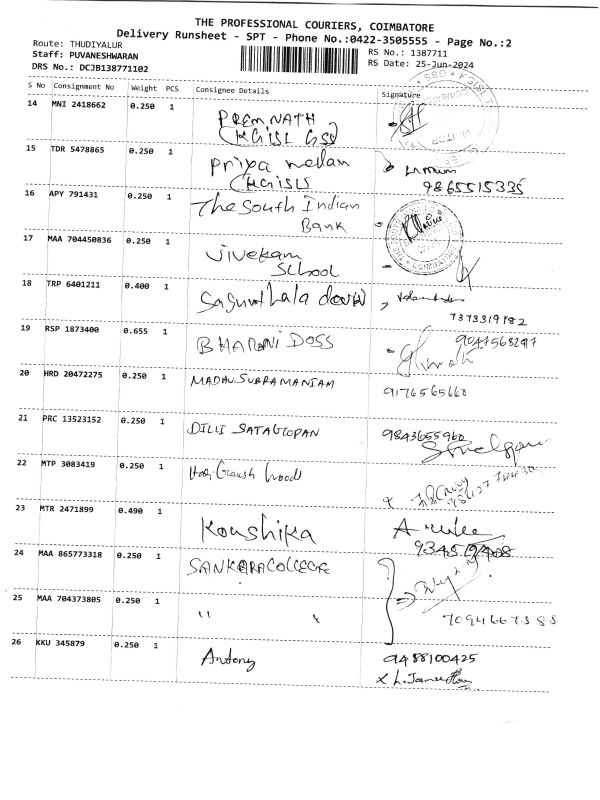 THE PROFESSIONAL COURIERS, COIMBATORE
Delivery Runsheet - SPT - Phone No.:0422-3505555 - Page No.:2
Route: THUDIYALUR
Staff: PUVANESHWARAN
DRS No.: DCJB138771102
RS No.: 1387711
RS Date: 25-Jun-2024
S No Consignment No Weight PCS Consignee Details Signature
14 MNI 2418662 0.250 1 PREM NATH
(KGISL GSS)
15 TDR 5478865 0.250 1 Priya
(KGISLS
9865515335
16 APY 791431 0.250 1 The South Indian
Bank
17 MAA 704450836 0.250 1 Vivekam
School
18 TRP 6401211 0.400 1
7373319182
19 RSP 1873400 0.655 1 BHARANI DOSS
9047568247
20 HRD 20472275 0.250 1 MADHU SUBRAMANIAM 9176565660
21 PRC 13523152 0.250 1 DILLI SATAGOPAN 9843655960
22 MTP 3083419 0.250 1
23 MTR 2471899 0.490 1 Koushika
24 MAA 865773318 0.250 1 SANKARA COLLEGE
25 MAA 704373805 0.250 1 " "
26 KKU 345879 0.250 1 Antony 9488100425